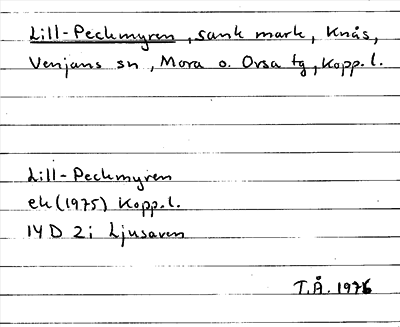 Lill-Peckmyren, sank mark, Knås,
Venjans sn, Mora o. Orsa tg, Kopp.l.
Lill-Peckmyren
ek (1975) Kopp.l.
14 D 2i Ljusaren
T.Å. 1976